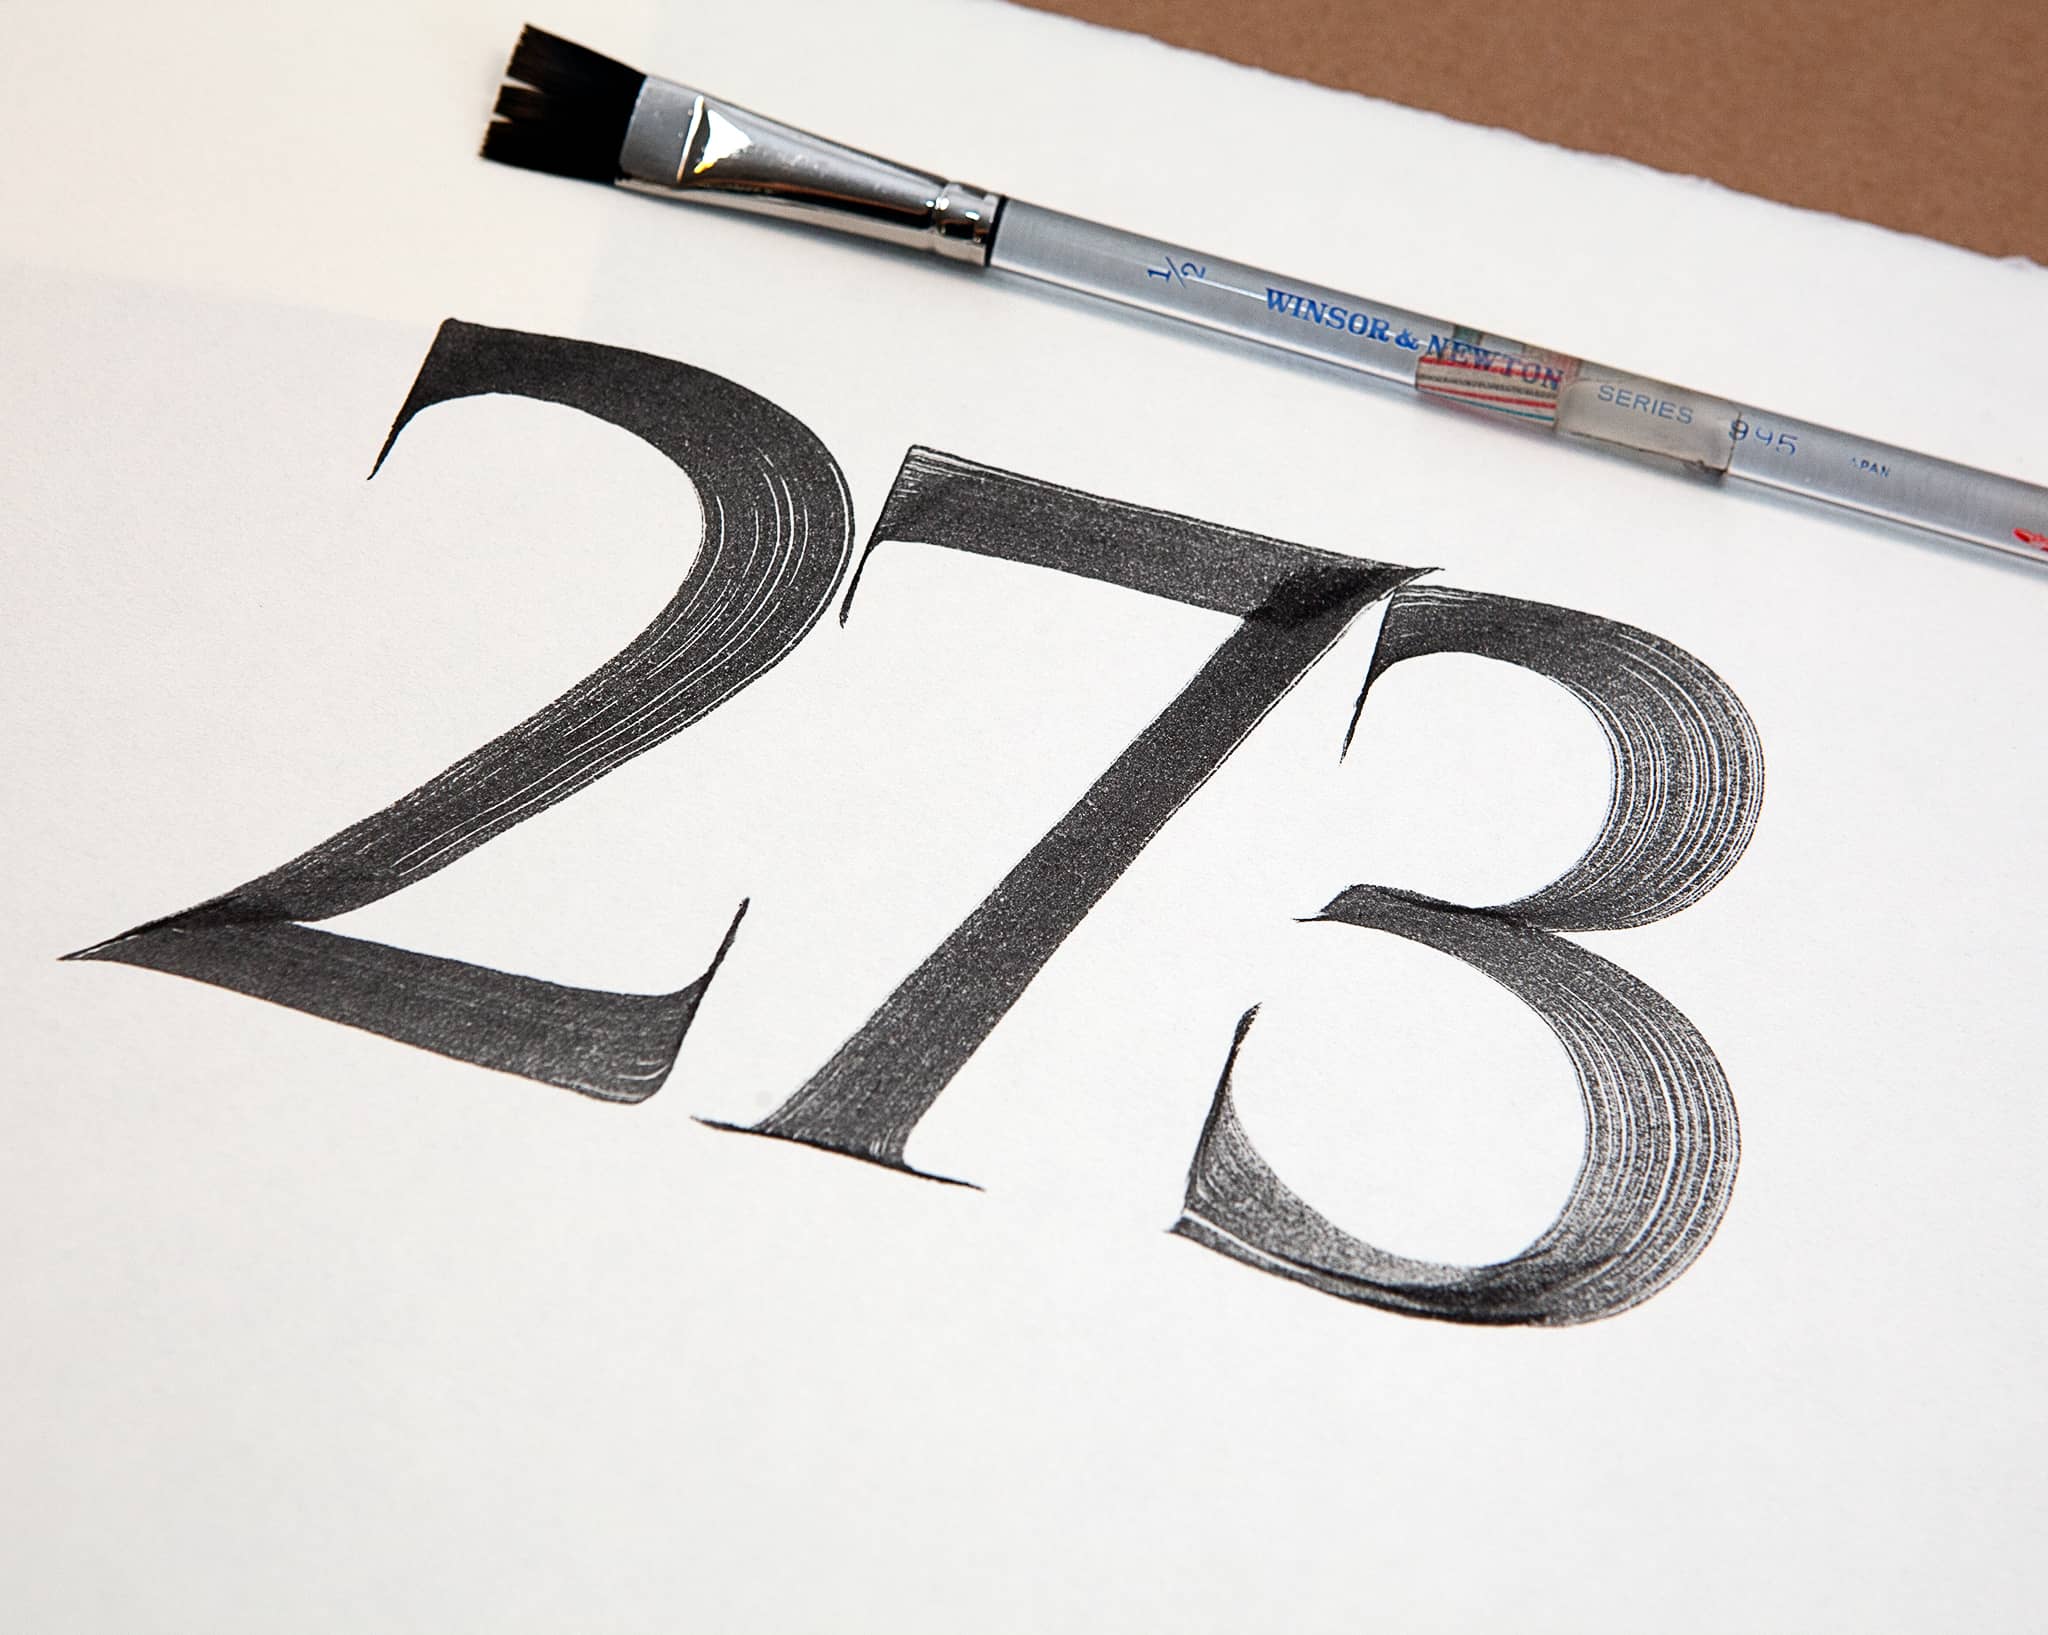 1/2 WINSOR & NEWTON SERIES 995 JAPAN
273